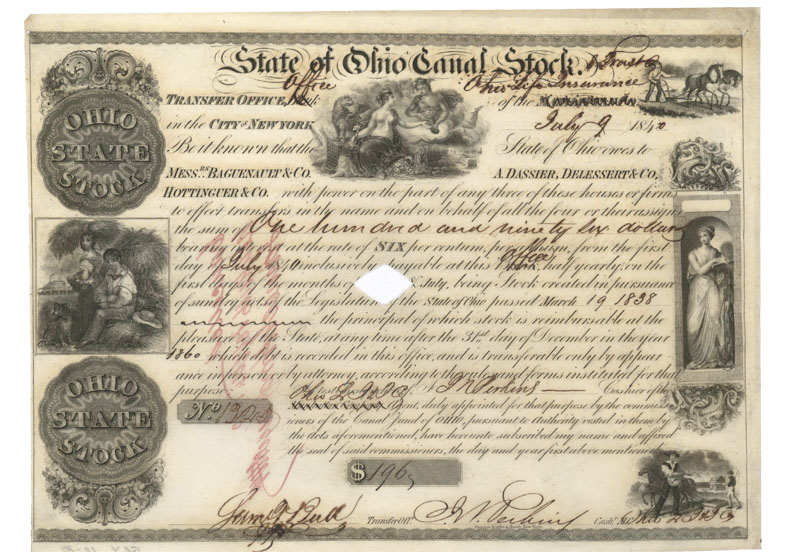 State of Ohio Canal Stock.
& Trust Co
Office
Ohio Life Insurance
TRANSFER OFFICE,
of the
in the CITY of NEW YORK
July 9 1840
Be it known that the
State of Ohio owes to
MESS.RS BAGUENAULT & CO.
A. DASSIER, DELESSERT & CO.
HOTTINGUER & CO. with power on the part of any three of these houses or firms
to effect transfers in the name and on behalf of all the four or their assigns
the sum of One hundred and ninety six dollars
bearing interest at the rate of SIX per centum, per annum, from the first
day of July inclusively payable at this Office half yearly, on the
first days of the months of July, being Stock created in pursuance
of sundry acts of the Legislature of the State of Ohio passed March 19 1838
the principal of which stock is reimbursable at the
pleasure of the State, at any time after the 31st day of December in the year
1860 which debt is recorded in this office, and is transferable only by appear
ance in person or by attorney, according to the rules and forms instituted for that
purpose.
Cashier of the
Ohio L I & T Co
duly appointed for that purpose by the commiss
ioners of the Canal Fund of OHIO, pursuant to Authority vested in them by
the Acts aforementioned, have hereunto subscribed my name and affixed
the seal of said commissioners, the day and year first above mentioned
No
$ 196
Transfer Off.
Cash.
OHIO
STATE
STOCK
OHIO
STATE
STOCK